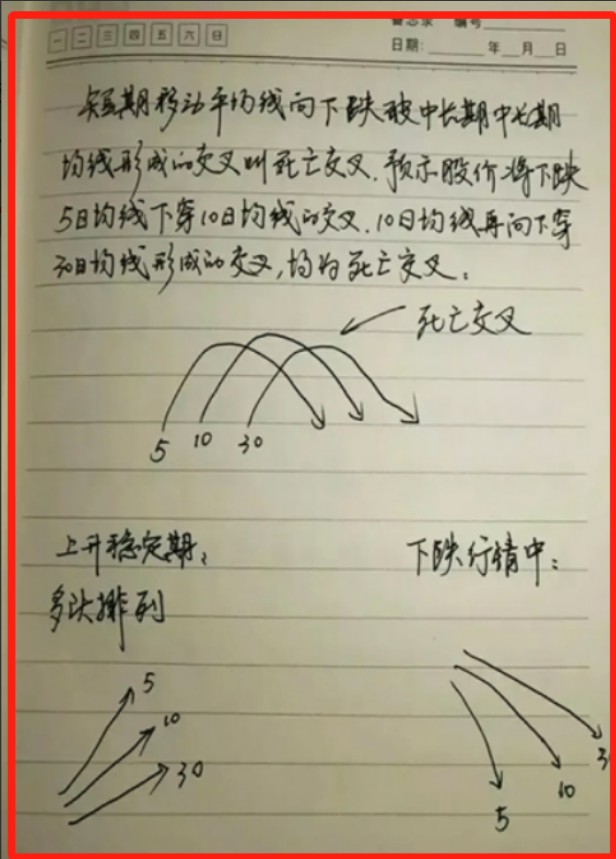 一 二 三 四 五 六 日
备忘录 编号
日期: 年 月 日
短期移动平均线向下跌破中长期中长期
均线形成的交叉叫死亡交叉,预示股价将下跌
5日均线下穿10日均线的交叉,10日均线再向下穿
30日均线形成的交叉,均为死亡交叉。
死亡交叉
5 10 30
上升稳定期: 下跌行情中:
多头排列
5
10
30
5
10
3